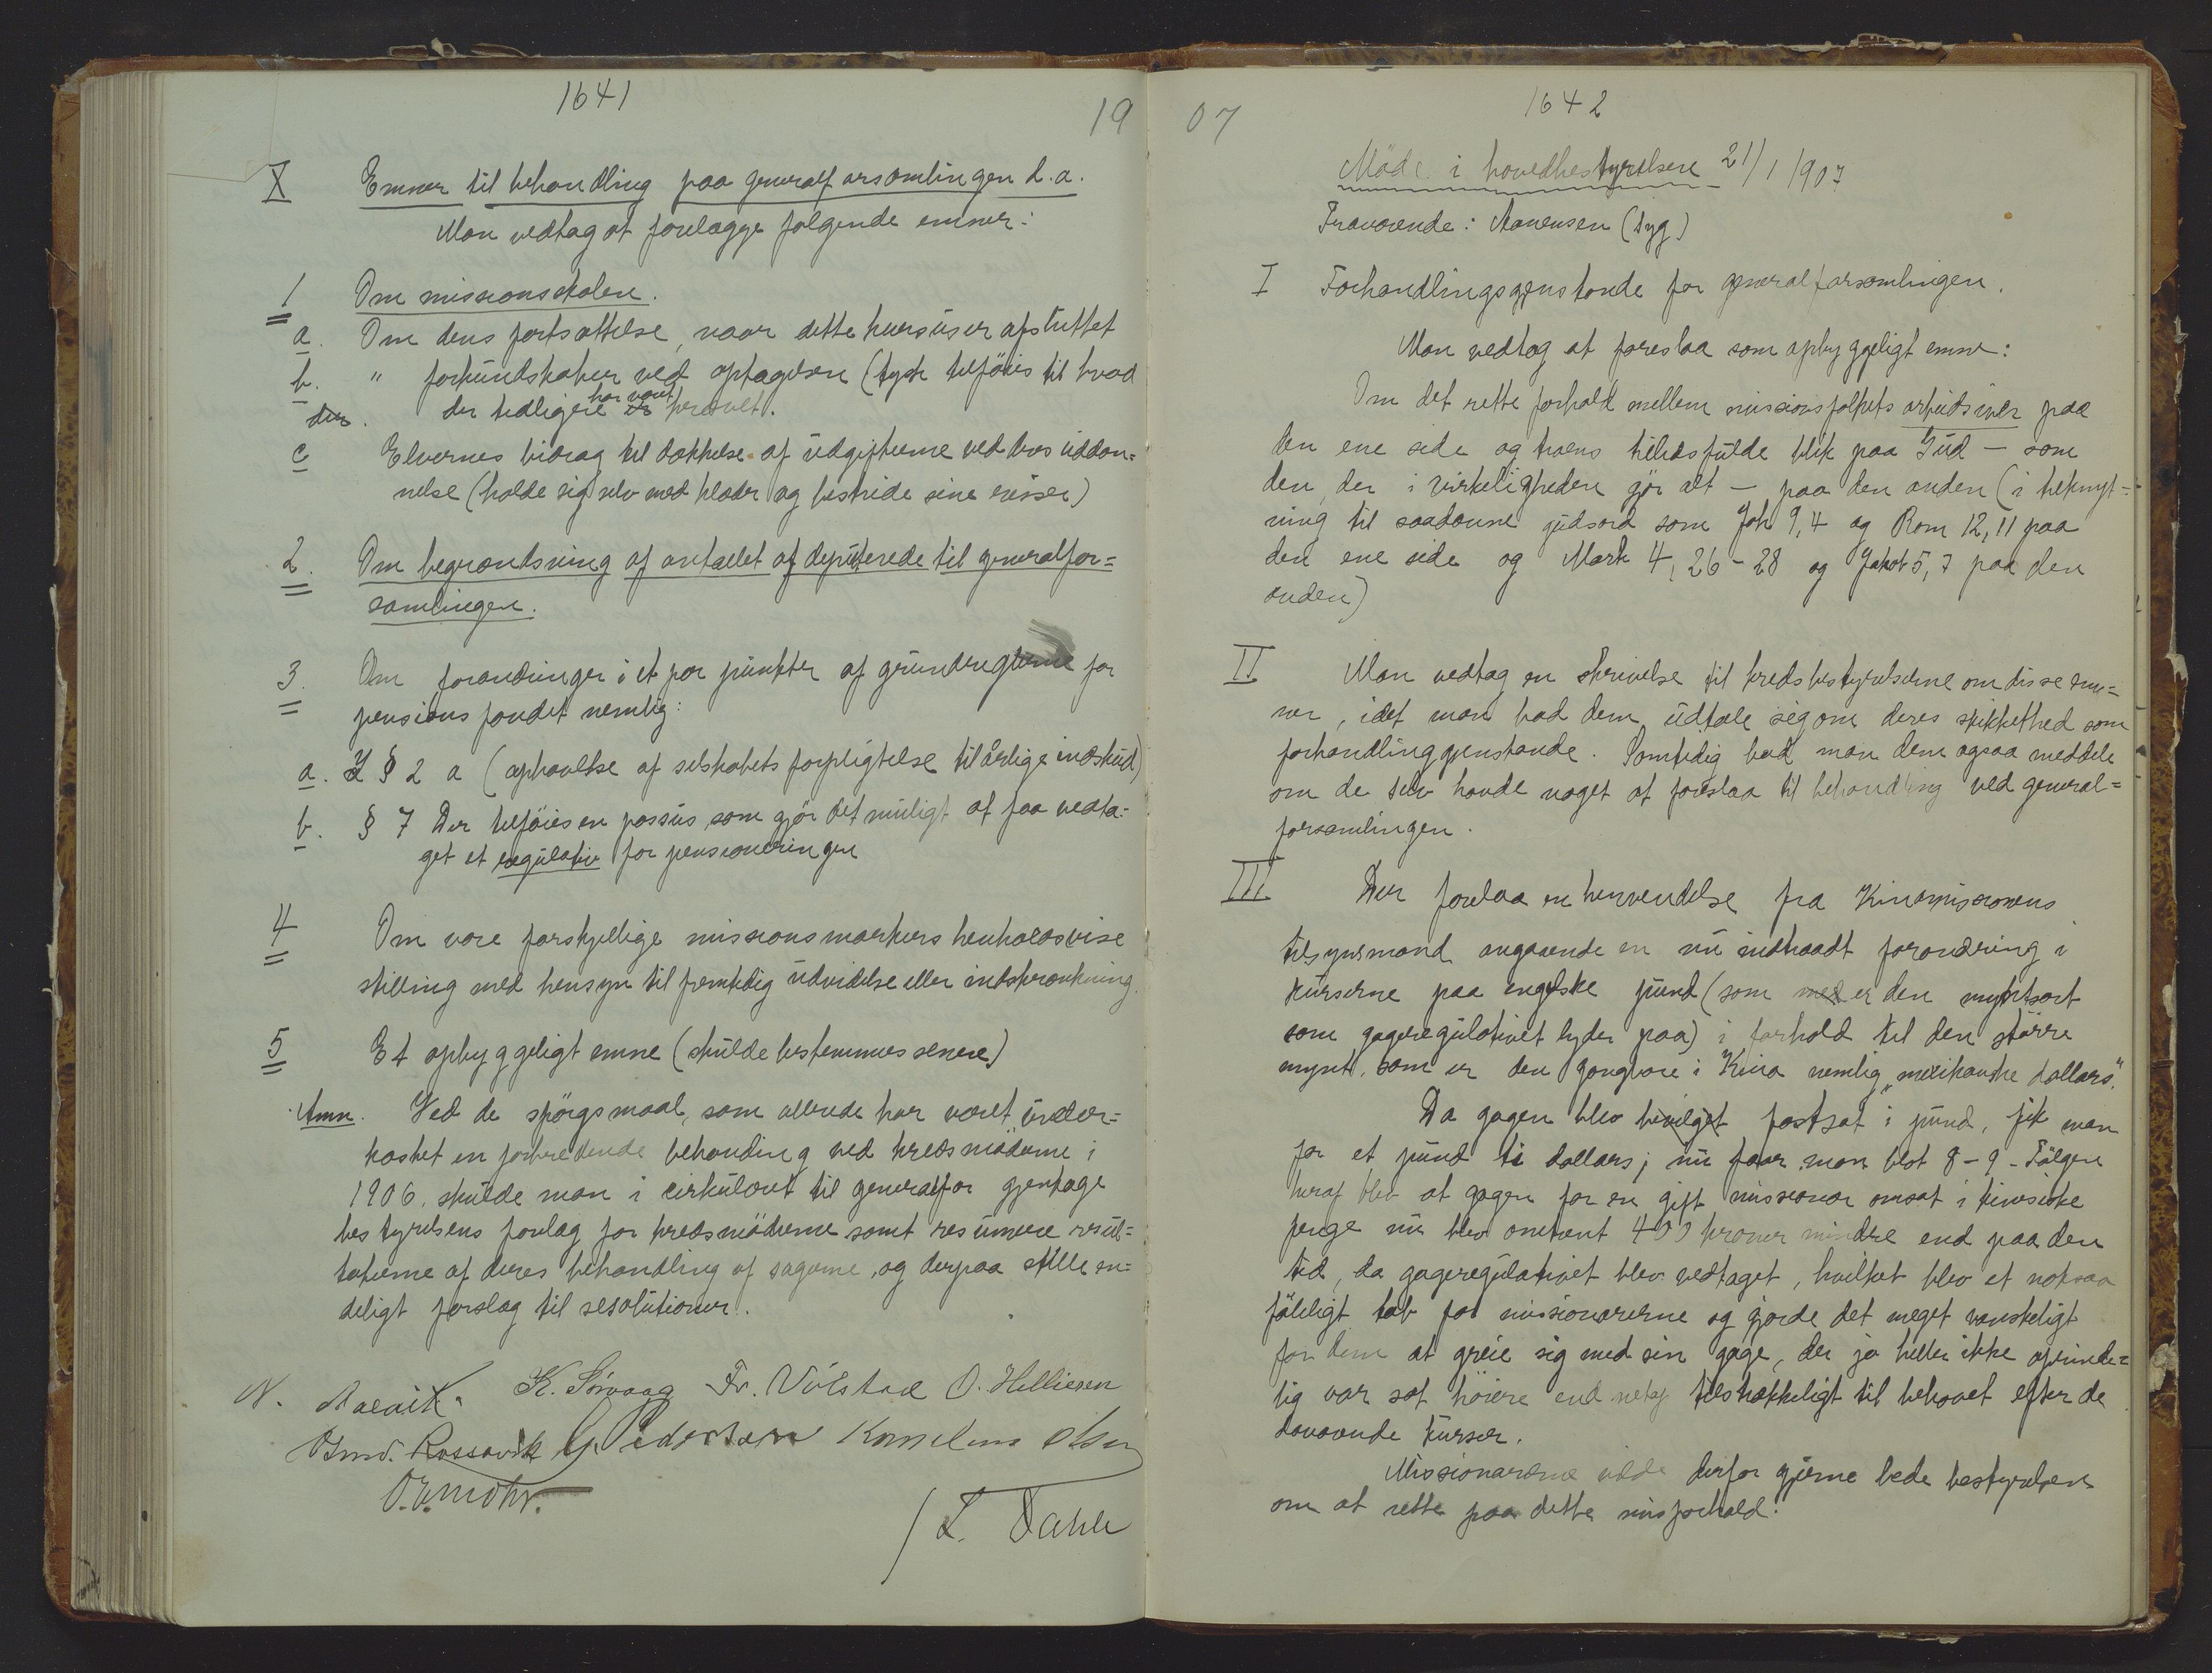 1641
19
X Emner til behandling paa generalforsamlingen d.a.
Man vedtog at forelægge følgende emner:
1 Om missionsskolen.
a. Om dens fortsættelse, naar dette kursus er afsluttet
b. " forkundskaber ved optagelsen (tysk tilföies til hvad
der. der tidligere har været er krævet.
c Elevernes bidrag til dækkelse af udgifterne ved deres uddan=
nelse (holde sig selv med klæder og bestride sine reiser)
2. Om begrændsning af antallet af deputerede til generalfor=
samlingen.
3. Om forandringer i et par punkter af grundreglerne for
pensionsfondet nemlig:
a. § 2 a (ophævelse af selskabets forpligtelse til årlige indskud)
b. § 7 Der tilföies en passus som gjör det muligt at faa vedta=
get et regulativ for pensioneringen
4 Om vore forskjellige missionsmarkers henholdsvise
stilling med hensyn til fremtidig udvidelse eller indskrænkning.
5 Et opbyggeligt emne (skulde bestemmes senere)
Anm. Ved de spörgsmaal, som allerede har været under=
kastet en forberedende behanding ved kredsmöderne i
1906, skulde man i cirkulæret til generalfor gjentage
bestyrelsens forslag for kredsmöderne samt resumere resul=
taterne af deres behandling af sagerne, og derpaa stille en=
deligt forslag til resolutioner.
N. K. Sörvaag Fr. Völstad O. Helliesen
Rossavik G. Pedersen Kornelius Olsen
O. E. Mohr.
/ L. Dahle
07
1642
Möde i hovedbestyrelsen 21/1 1907
Fraværende: Aanensen (syg)
I Forhandlingsgjenstande for generalforsamlingen.
Man vedtog at foreslaa som opbyggeligt emne:
Om det rette forhold mellem missionsfolkets arbeidsiver paa
den ene side og troens tillidsfulde blik paa Gud – som
den, der i virkeligheden gjör alt – paa den anden (i tilknyt=
ning til saadanne gudsord som Joh 9,4 og Rom 12,11 paa
den ene side og Mark 4, 26-28 og Jakob 5,7 paa den
anden)
II Man vedtog en skrivelse til kredsbestyrelserne om disse em=
ner, idet man bad dem udtale sig om deres skikkethed som
forhandlinggjenstande. Samtidig bad man dem ogsaa meddele
om de selv havde noget at foreslaa til behandling ved general=
forsamlingen.
III Der forelaa en henvendelse fra Kinamissionens
tilsynsmand angaaende en nu indtraadt forandring i
kurserne paa engelske pund (som med er den myntsort
som gageregulativet lyder paa) i forhold til den större
mynt, som er den gangbare i Kina nemlig "mexikanske dollars".
Da gagen blev bevilget fastsat i pund, fik man
for et pund ti dollars; nu faar man blot 8-9. Fölgen
heraf blev at gagen for en gift missionær omsat i kinesiske
penge nu blev omtrent 400 kroner mindre end paa den
tid, da gageregulativet blev vedtaget, hvilket blev et noksaa
föleligt tab for missionærerne og gjorde det meget vanskeligt
for dem at greie sig med sin gage, der jo heller ikke oprinde=
lig var sat höiere end netop tilstrækkeligt til behovet efter de
daværende kurser.
Missionærerne vilde derfor gjerne bede bestyrelsen
om at rette paa dette misforhold.